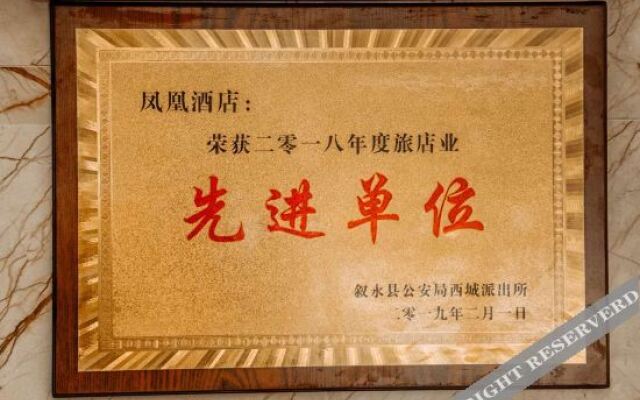 凤凰酒店：
荣获二零一八年度旅店业
先进单位
叙永县公安局西城派出所
二零一九年二月一日
RIGHT RESERVERD